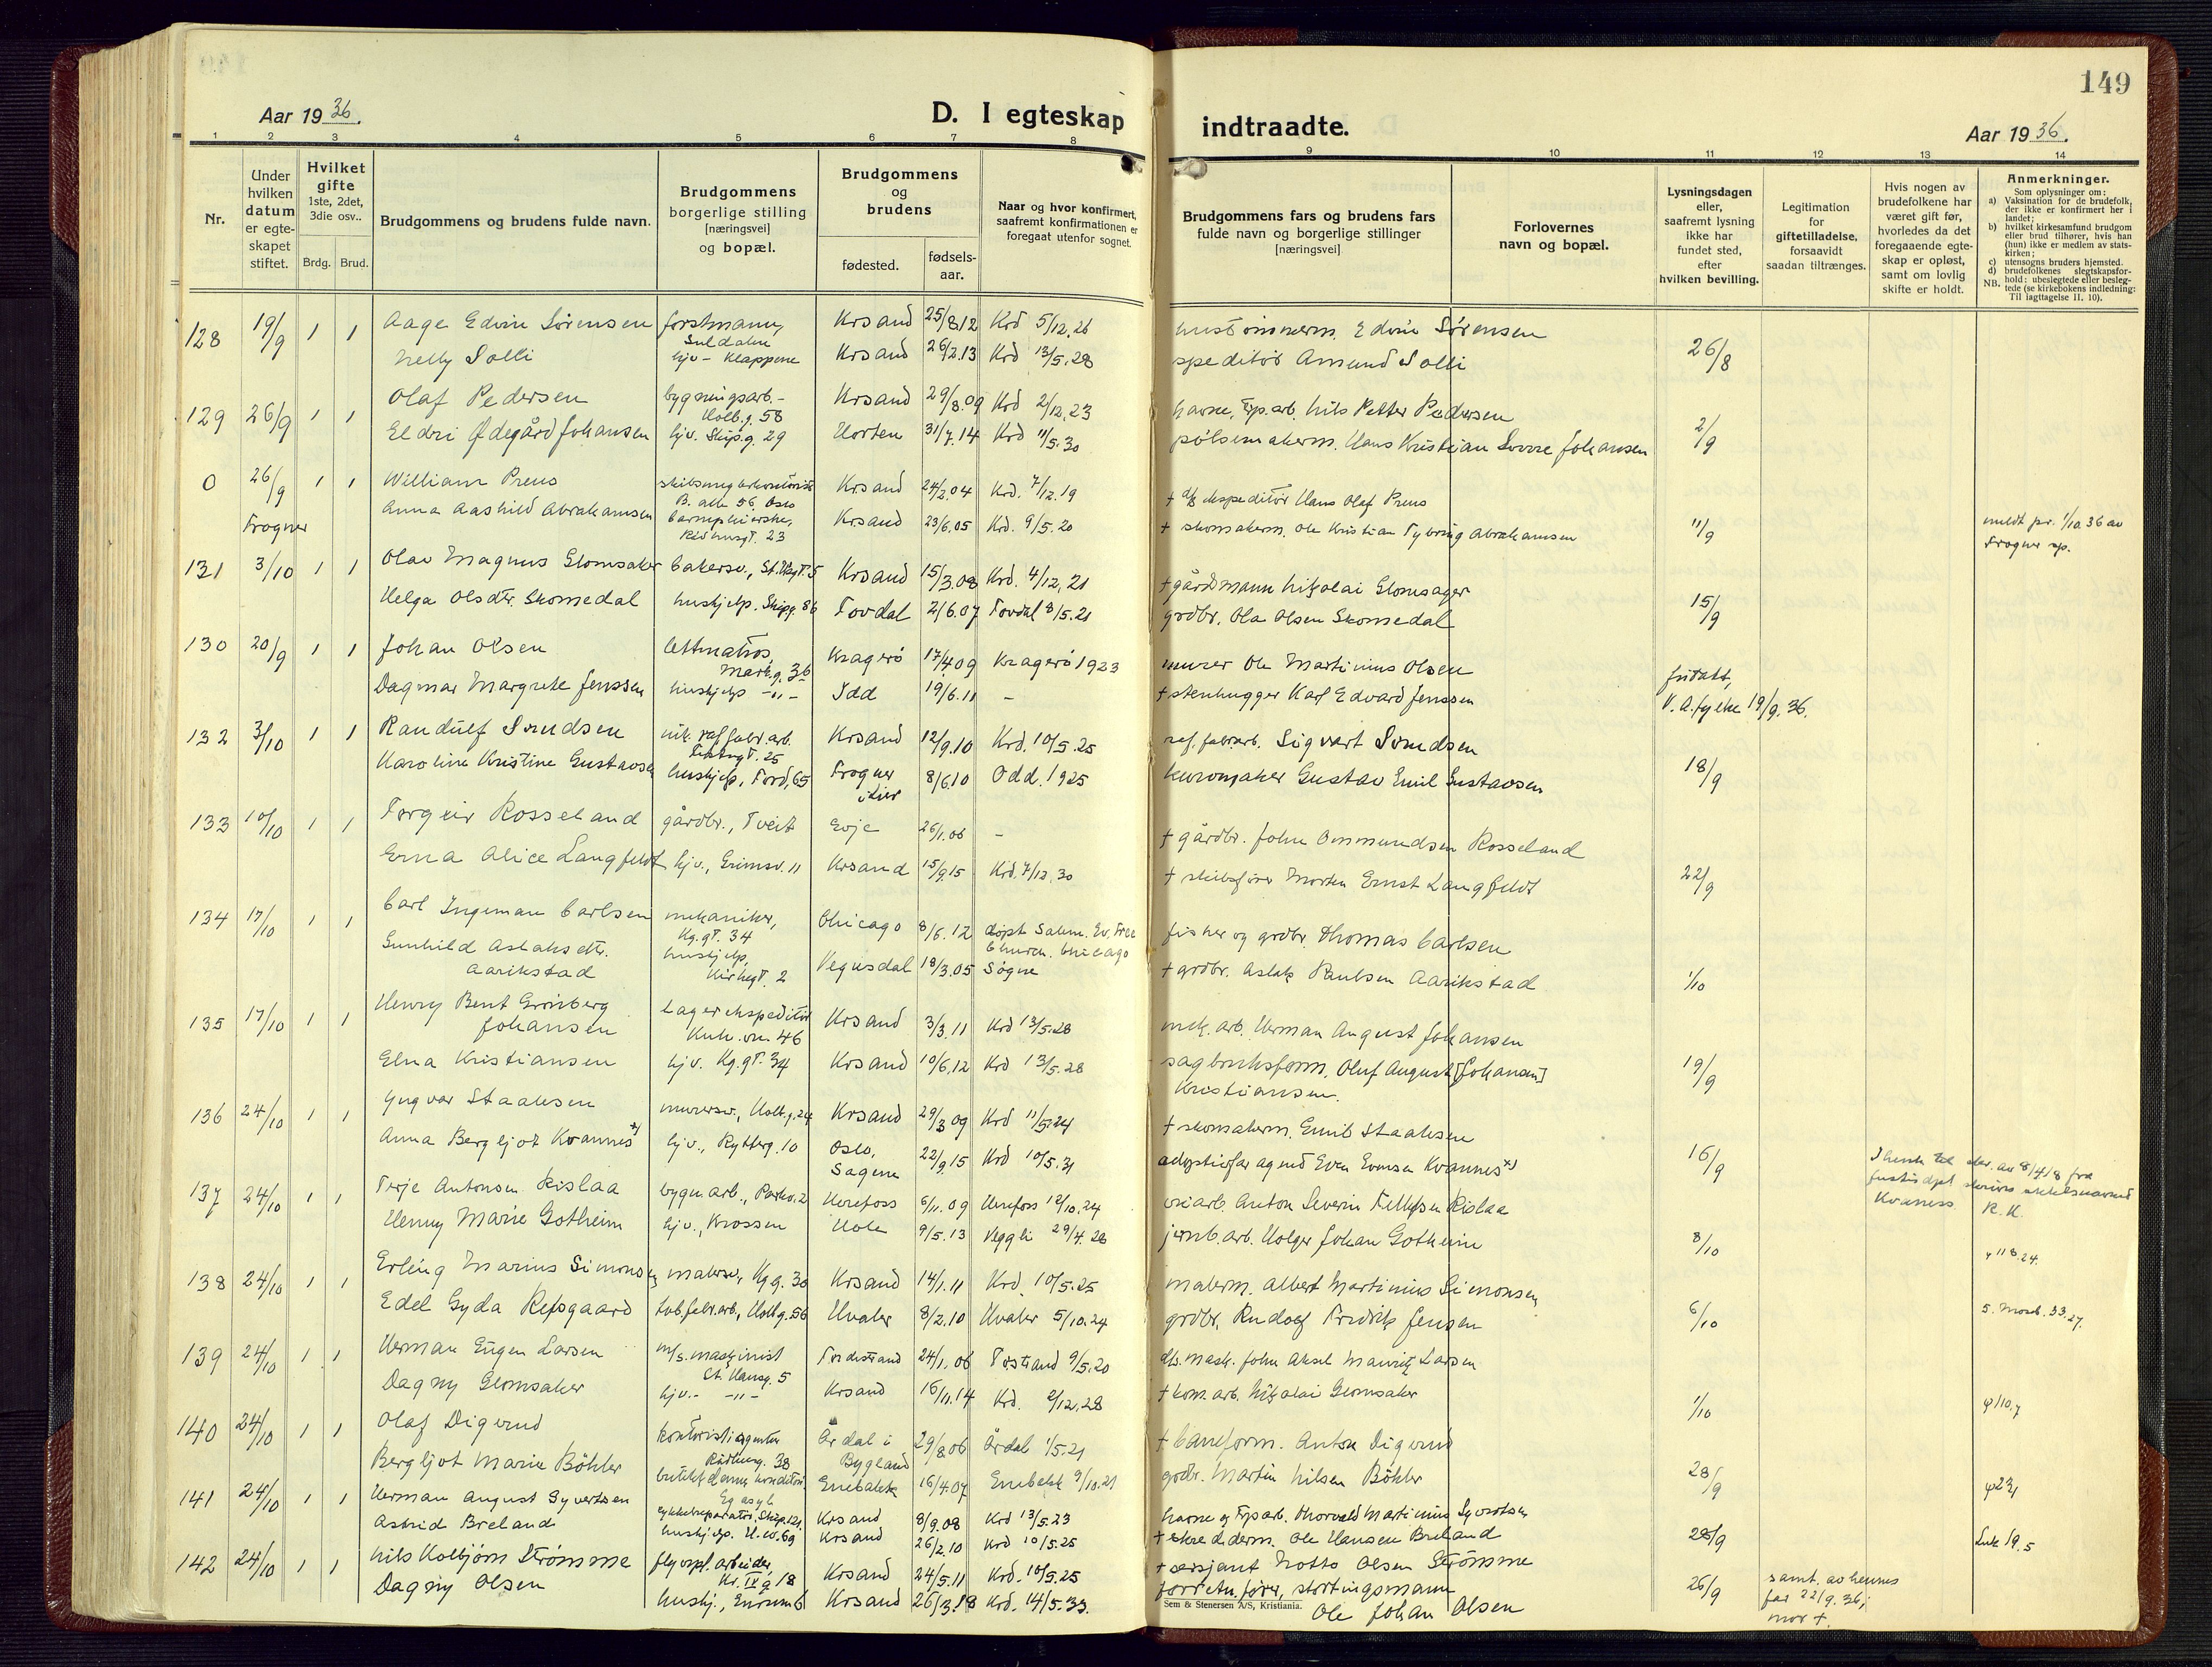 149
Aar 1936.
D. I egteskap
indtraadte.
Aar 1936.
1 2 3 4 5 6 7 8 9 10 11 12 13 14
Nr.
Under hvilken datum er egte-skapet stiftet.
Hvilket gifte 1ste, 2det, 3die osv..
Brdg. Brud.
Brudgommens og brudens fulde navn.
Brudgommens borgerlige stilling [næringsvei] og bopæl.
Brudgommens og brudens
fødested.
fødsels-aar.
Naar og hvor konfirmert, saafremt konfirmationen er foregaat utenfor sognet.
Brudgommens fars og brudens fars fulde navn og borgerlige stillinger [næringsvei]
Forlovernes navn og bopæl.
Lysningsdagen eller, saafremt lysning ikke har fundet sted, efter hvilken bevilling.
Legitimation for giftetilladelse, forsaavidt saadan tiltrænges.
Hvis nogen av brudefolkene har været gift før, hvorledes da det foregaaende egte-skap er opløst, samt om lovlig skifte er holdt.
Anmerkninger.
Som oplysninger om:
a) Vaksination for de brudefolk, der ikke er konfirmert her i landet;
b) hvilket kirkesamfund brudgom eller brud tilhører, hvis han (hun) ikke er medlem av stats-kirken;
c) utensogns bruders hjemsted.
d) brudefolkenes slegtskapsfor-hold: ubeslegtede eller besleg-tede (se kirkebokens indledning:
NB. Til iagttagelse II, 10).
128 19/9 1 1 Aage Edvin Sørensen forstmann, Suldalen Krsand 25/8.12 Krd 5/12.26 hustømmerm. Edvin Sørensen
Nelly Solli hjv - Klappene Krsand 26/2.13 Krd 13/5.28 speditør Amund Solli 26/8
129 26/9 1 1 Olaf Pedersen bygningsarb. - Holb.g. 58 Krsand 29/8.09 Krd 2/12.23 havne, fyp.arb. Nils Petter Pedersen
Eldri Ødegård Johansen hjv. Skip.g. 29 Horten 31/7.14 Krd 11/5.30 pølsemakerm. Hans Kristian Sverre Johansen 2/9
0 26/9 1 1 William Preus B. alle 56, Oslo Krsand 24/2.04 Krd. 7/12.19 + d/s ekspeditør Hans Olaf Preus
Frogner Anna Aashild Abrahamsen barnepleierske, Rådhusgt. 23 Krsand 23/6.05 Krd. 9/5.20 + skomakerm. Ole Kristian Tybring Abrahamsen 11/9 meldt pr. 1/10.36 av Frogner sp.
131 3/10 1 1 Olav Magnus Glomsaker bakersv., St.Hsgt. 5 Krsand 15/3.08 Krd. 4/12.21 + gårdsmann Nikolai Glomsager
Helga Olsdtr. Skomedal hushjelp, Skipg. 86 Tovdal 2/6.07 Tovdal 8/5.21 grdbr. Ola Olsen Skomedal 15/9
130 20/9 1 1 Johan Olsen lettmatros, Mark.g. 36 Kragerø 17/4.09 Kragerø 1923 murer Ole Martinius Olsen
Dagmar Margrete Jenssen hushjelp -"- Idd 19/6.11 - + stenhugger Karl Edvard Jenssen V.A.fylke 19/9.36.
132 3/10 1 1 Randulf Svendsen nik.raf.fabr.arb. Krsand 12/9.10 Krd. 10/5.25 raf.fabr.arb. Sigvart Svendsen
Karoline Kristine Gustavsen hushjelp, Tord. 65 Frogner i Lier 8/6.10 Odd. 1925 kurvmaker Gustav Emil Gustavsen 18/9
133 10/10 1 1 Torgeir Rosseland gårdbr., Tveit Evje 26/1.06 - + gårdbr. John Ommundsen Rosseland
Erna Alice Langfeldt hjv., Grimsv. 11 Krsand 15/9.15 Krd. 7/12.30 + skibsfører Morten Ernst Langfeldt 22/9
134 17/10 1 1 Carl Ingeman Carlsen mekaniker, Kg.gt. 34 Chicago 8/6.12 døpt Salem. Ev. Free Church. Chicago fisker og grdbr. Thomas Carlsen
Gunhild Aslaksdtr. Aarikstad hushjelp, Kirkegt. 2 Vegusdal 18/3.05 Søgne + grdbr. Aslak Paulsen Aarikstad 1/10
135 17/10 1 1 Henry Bent Grønberg Johansen Lagerekspeditør Kuh.vn. 46 Krsand 3/3.11 Krd 13/5.28 mek. arb. Herman August Johansen
Elna Kristiansen hjv. Kg.gt. 34 Krsand 10/6.12 Krd 13/5.28 sagbruksform. Oluf August [Johansen] Kristiansen. 19/9
136 24/10 1 1 Yngvar Staalesen murersv., Holb.g. 24 Krsand 29/3 09 Krd 11/5.24 + skomakerm. Emil Staalesen
Anna Bergljot Kvannes x) hjv., Rytterg. 10 Oslo, Sagene 22/9.15 Krd 10/5.31 adoptivfar agent Even Evensen Kvannes x) 16/9
137 24/10 1 1 Terje Antonsen Rislaa bygn.arb., Parkv. 2 Herefoss 6/11.09 Herefoss 12/10.24 veiarb. Anton Severin Rislaa Kvaness R.K.
Henny Marie Gotheim hjv., Krossen Hole 9/5.13 Veggli 29/4.28 jernb.arb. Holger Johan Gotheim 8/10 118.24.
138 24/10 1 1 Erling Marius Simonsen malersv., Kg.g. 30 Krsand 14/1.11 Krd. 10/5.25 malerm. Albert Martinius Simonsen
Edel Gyda Refsgaard tob.fabr.arb., Holb.g. 56 Hvaler 8/2.10 Hvaler 5/10.24 grdbr. Rudolf Fredrik Jensen 6/10 5. Moseb. 33.27.
139 24/10 1 1 Herman Eugen Larsen m/s. maskinist St. Hansg. 5 Tordestrand 24/1.06 9/5.20 d/s. mask. John Aksel Mauritz Larsen
Dagny Glomsaker hjv.- -"- Krsand 16/11.14 Krd. 2/12.28 + kom.arb. Nikolai Glomsaker 1/10 φ 110.7
140 24/10 1 1 Olaf Digerud kontorist, agentur Rådhusg. 38 Årdal i Bygland 29/8.06 Årdal 1/5.21 + baneform. Anton Digerud
Bergljot Marie Böhler Enebakk 16/4.07 Enebakk 9/10.21 grdbr. Martin Nilsen Böhler 28/9 φ 23,1
141 24/10 1 1 Herman August Syvertsen sykkelreparatør, Skipp. 121. Krsand 8/9.08 Krd 13/5.23 havne og fyp.arb. Thorvald Martinius Syvertsen
Astrid Breland hushjelp. H.vd. 69 Krsand 26/2.10 Krd 10/5.25 + skredderm. Ole Hansen Breland 28/9 Luk 19.5
142 24/10 1 1 Nils Kolbjørn Strømme flyvepl. arbeider, Kr. IV g 18 Krsand 24/5.11 Krd. 10/5.25 + sersjant Notto Olsen Strømme
Dagny Olsen hushj., Krsand 26/3.18 Krd. 14/5.33. forretn.fører, stortingsmann Ole Johan Olsen 26/9 samt. av hennes far 22/9.36; mor +.
Sem & Stenersen A/S, Kristiania.